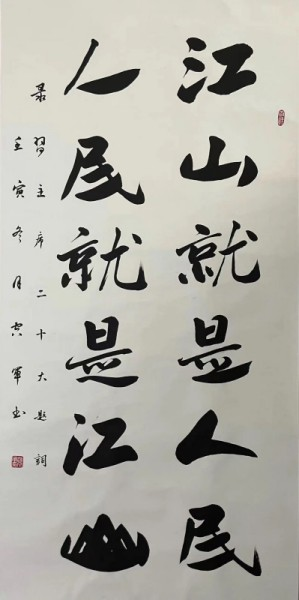 江山就是人民
人民就是江山
录習主席二十大题詞
壬寅冬月軍书